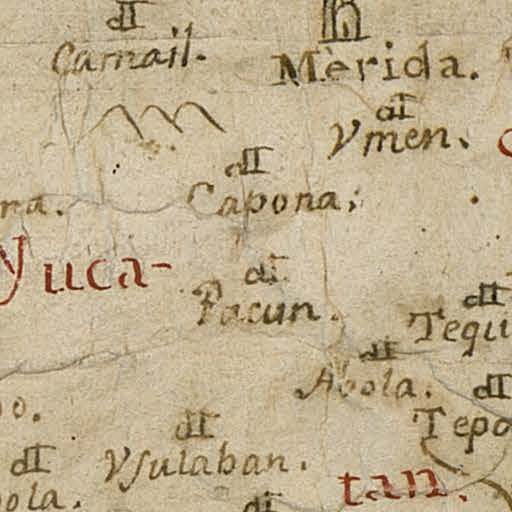 Camail.
Mèrida.
Vmen.
na.
Capona;
Yuca-
Pacun.
Tequ
Abola.
Tepo
o.
Vsulaban.
ola.
tan.